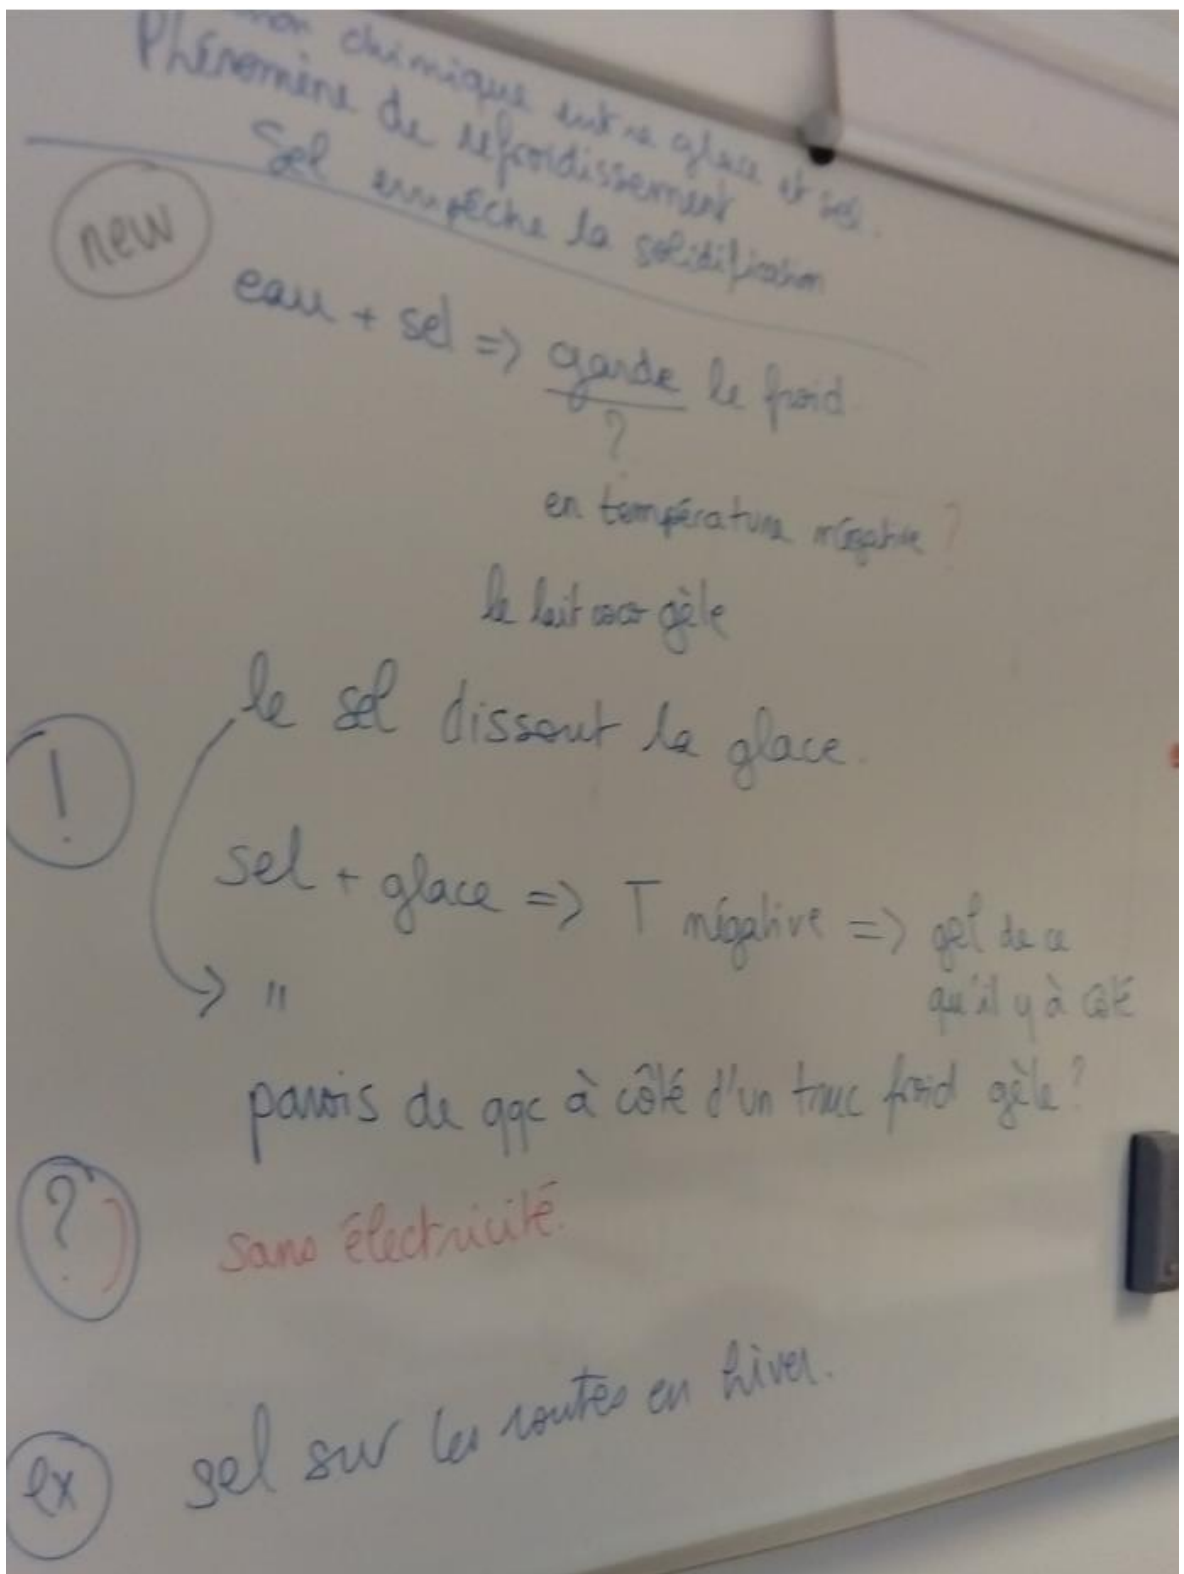 chimique entre glace et sel.
Phénomène de refroidissement
Sel empêche la solidification
new
eau + sel => garde le froid
?
en température négative ?
le lait coco gèle
le sel dissout la glace.
!
sel + glace => T négative => gel de ce
qu'il y à côté
"
parois de qqc à côté d'un truc froid gèle ?
?
sans électricité.
ex
sel sur les routes en hiver.